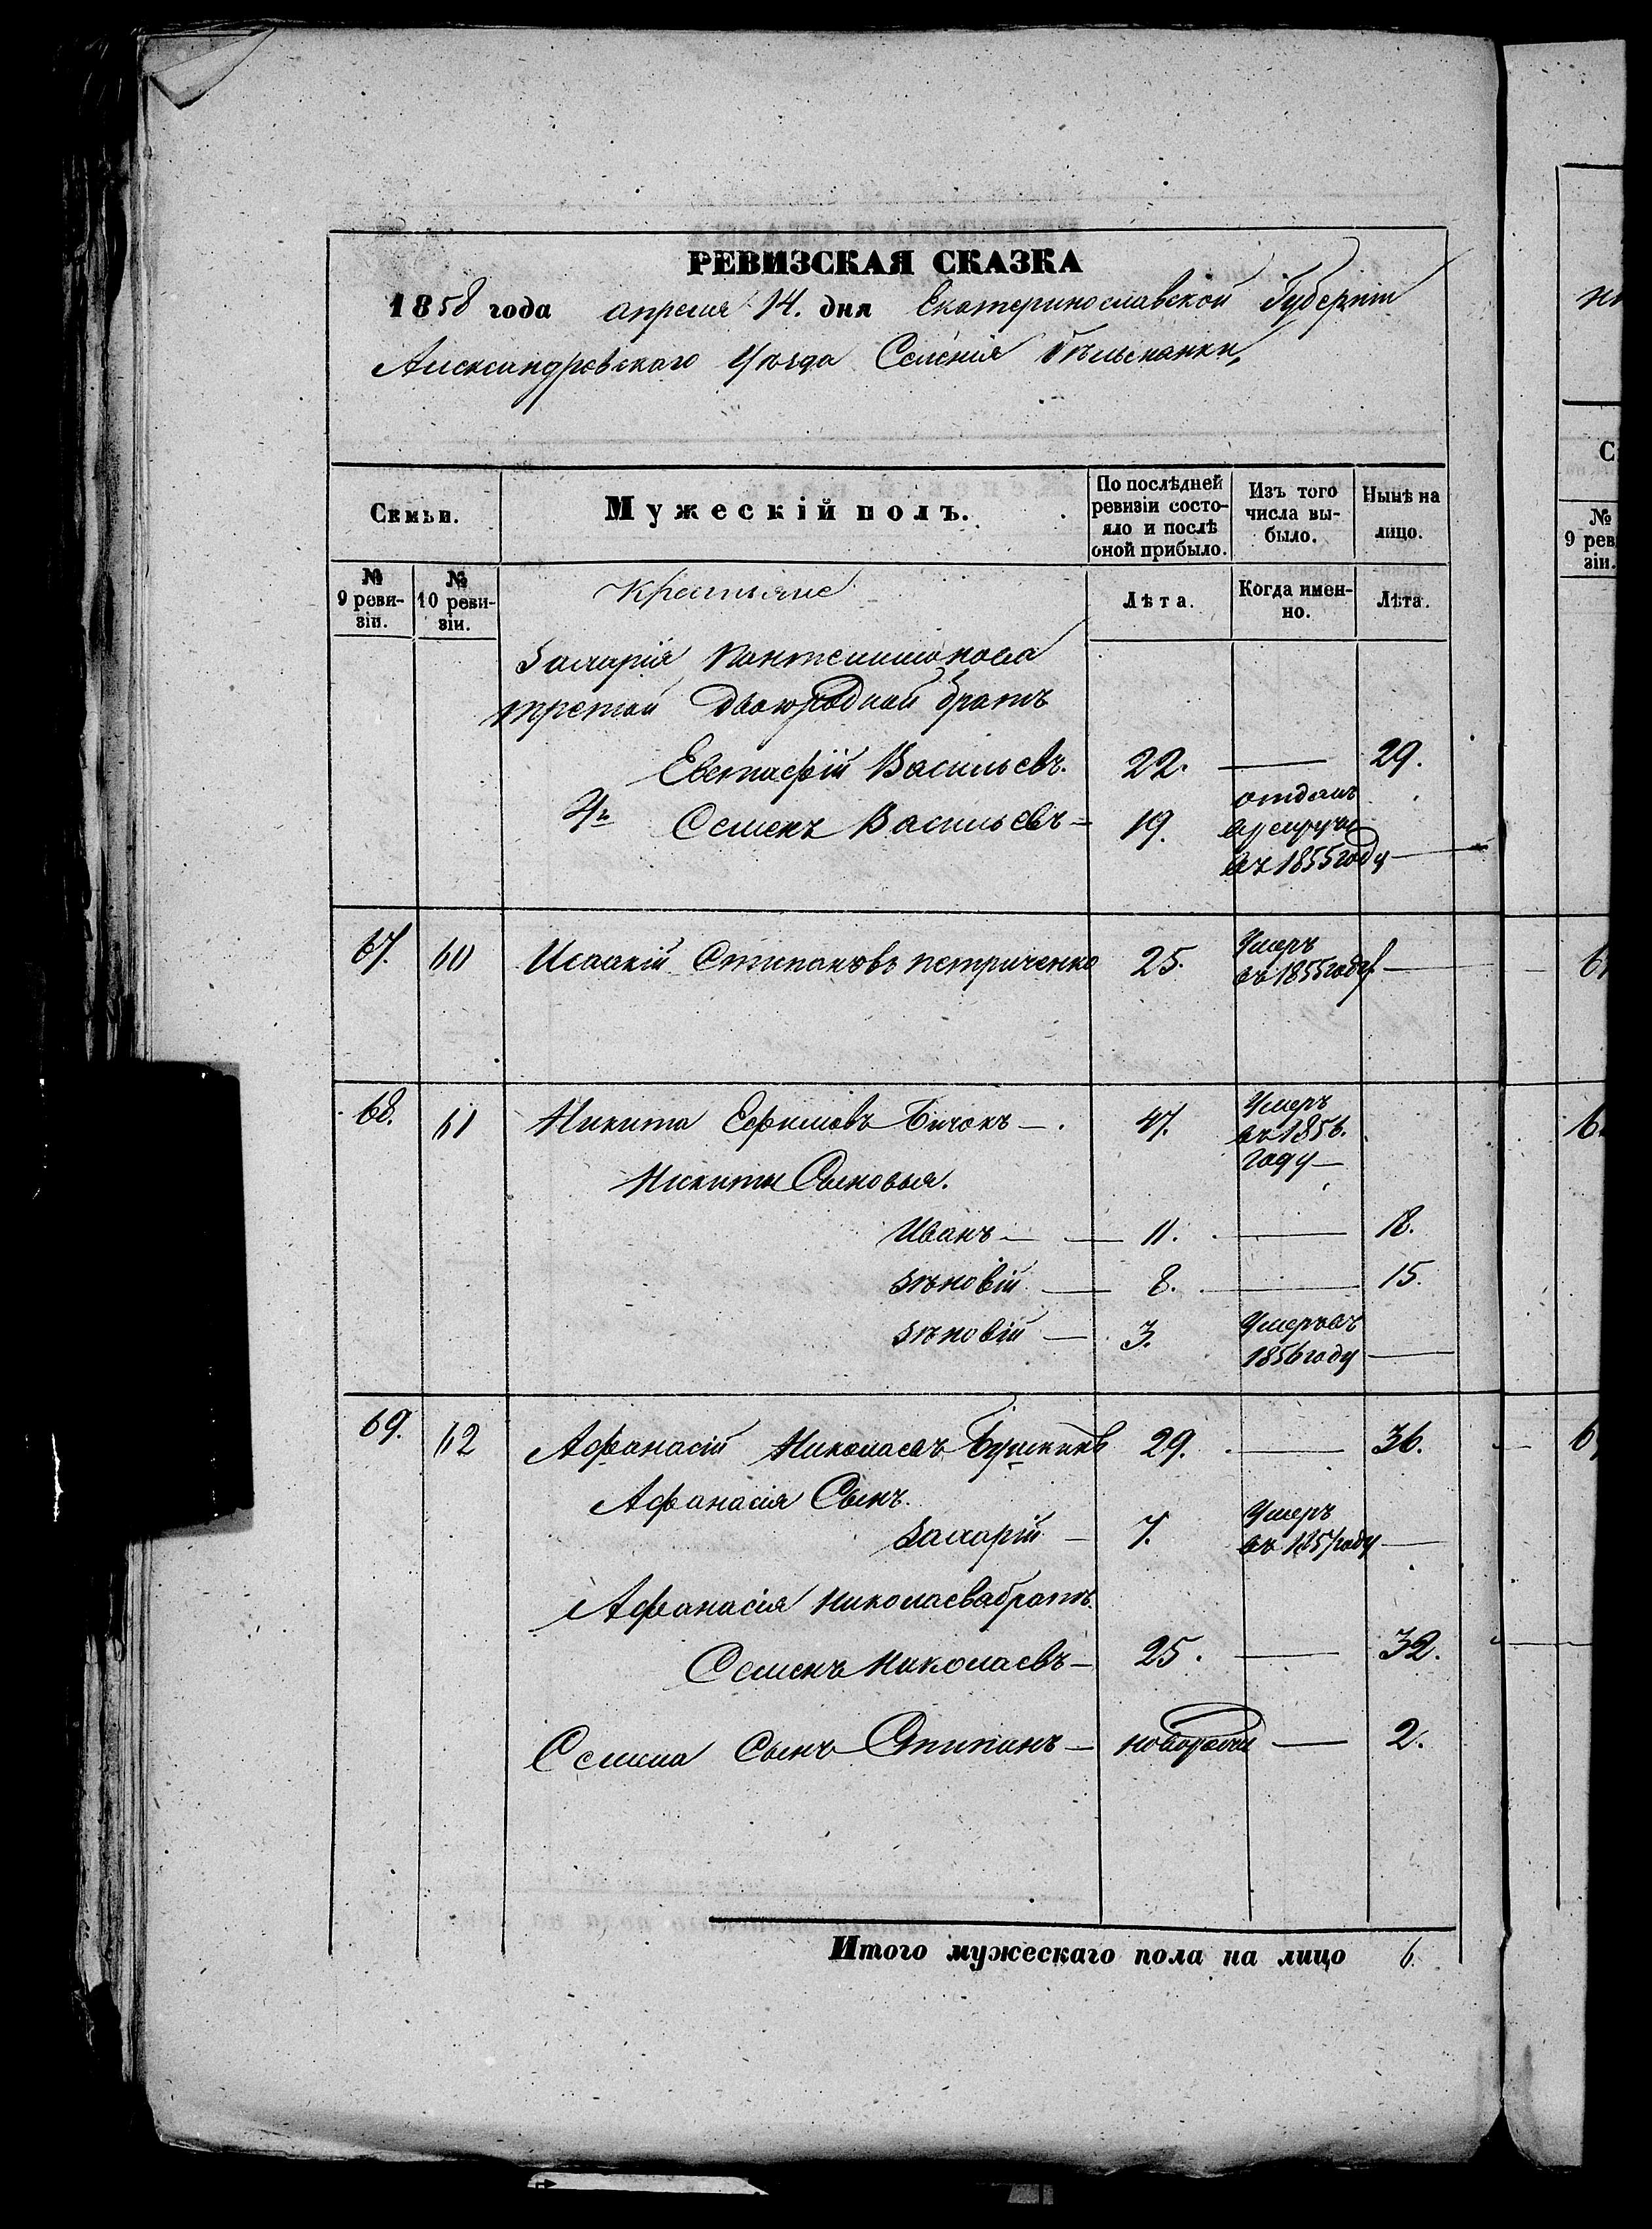 РЕВИЗСКАЯ СКАЗКА
1858 года апреля 14. дня Екатеринославской Губерніи
Александровскаго Уѣзда Селенія Бѣльманки
Семьи. Мужескій полъ. По послѣдней ревизіи состояло и послѣ оной прибыло. Изъ того числа выбыло. Нынѣ на лицо.
№ 9 ревизіи. № 10 ревизіи. Крестьяне Лѣта. Когда именно. Лѣта.
Захарія Пантелимонова
третий двоюродный братъ
Евстафій Васильевъ. 22. — 29.
4й Семенъ Васильевъ — 19. отданъ в рекруты въ 1855 году —
67. 60 Исаакій Степановъ Петриченко 25. Умеръ въ 1855 году —
68. 61 Никита Ефимовъ Бичокъ — 47. Умеръ въ 1856. году —
Никиты Сыновья.
Иванъ — 11. — 18.
Зѣновій — 8. — 15.
Зѣновій — 3. Умеръ въ 1856 году —
69. 62 Афанасій Николаевъ 29. — 36.
Афанасія Сынъ.
Захарій — 7. Умеръ въ 1857 году —
Афанасія Николаева братъ
Семенъ Николаевъ — 25. — 32.
Семена Сынъ Степанъ — новорожд — 2.
Итого мужескаго пола на лицо 6.
№ 9 ревизіи.